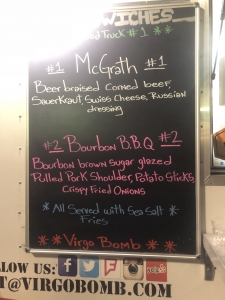 WICHES
Truck #1 **
#1 McGrath #1
Beer braised corned beef,
Sauerkraut, Swiss Cheese, Russian
dressing
#2 Bourbon B.B.Q #2
Bourbon brown sugar glazed
Pulled Pork Shoulder, Potato Sticks,
Crispy Fried Onions
* All Served with Sea Salt *
Fries
** Virgo Bomb **
LOW US:
T@VIRGOBOMB.COM